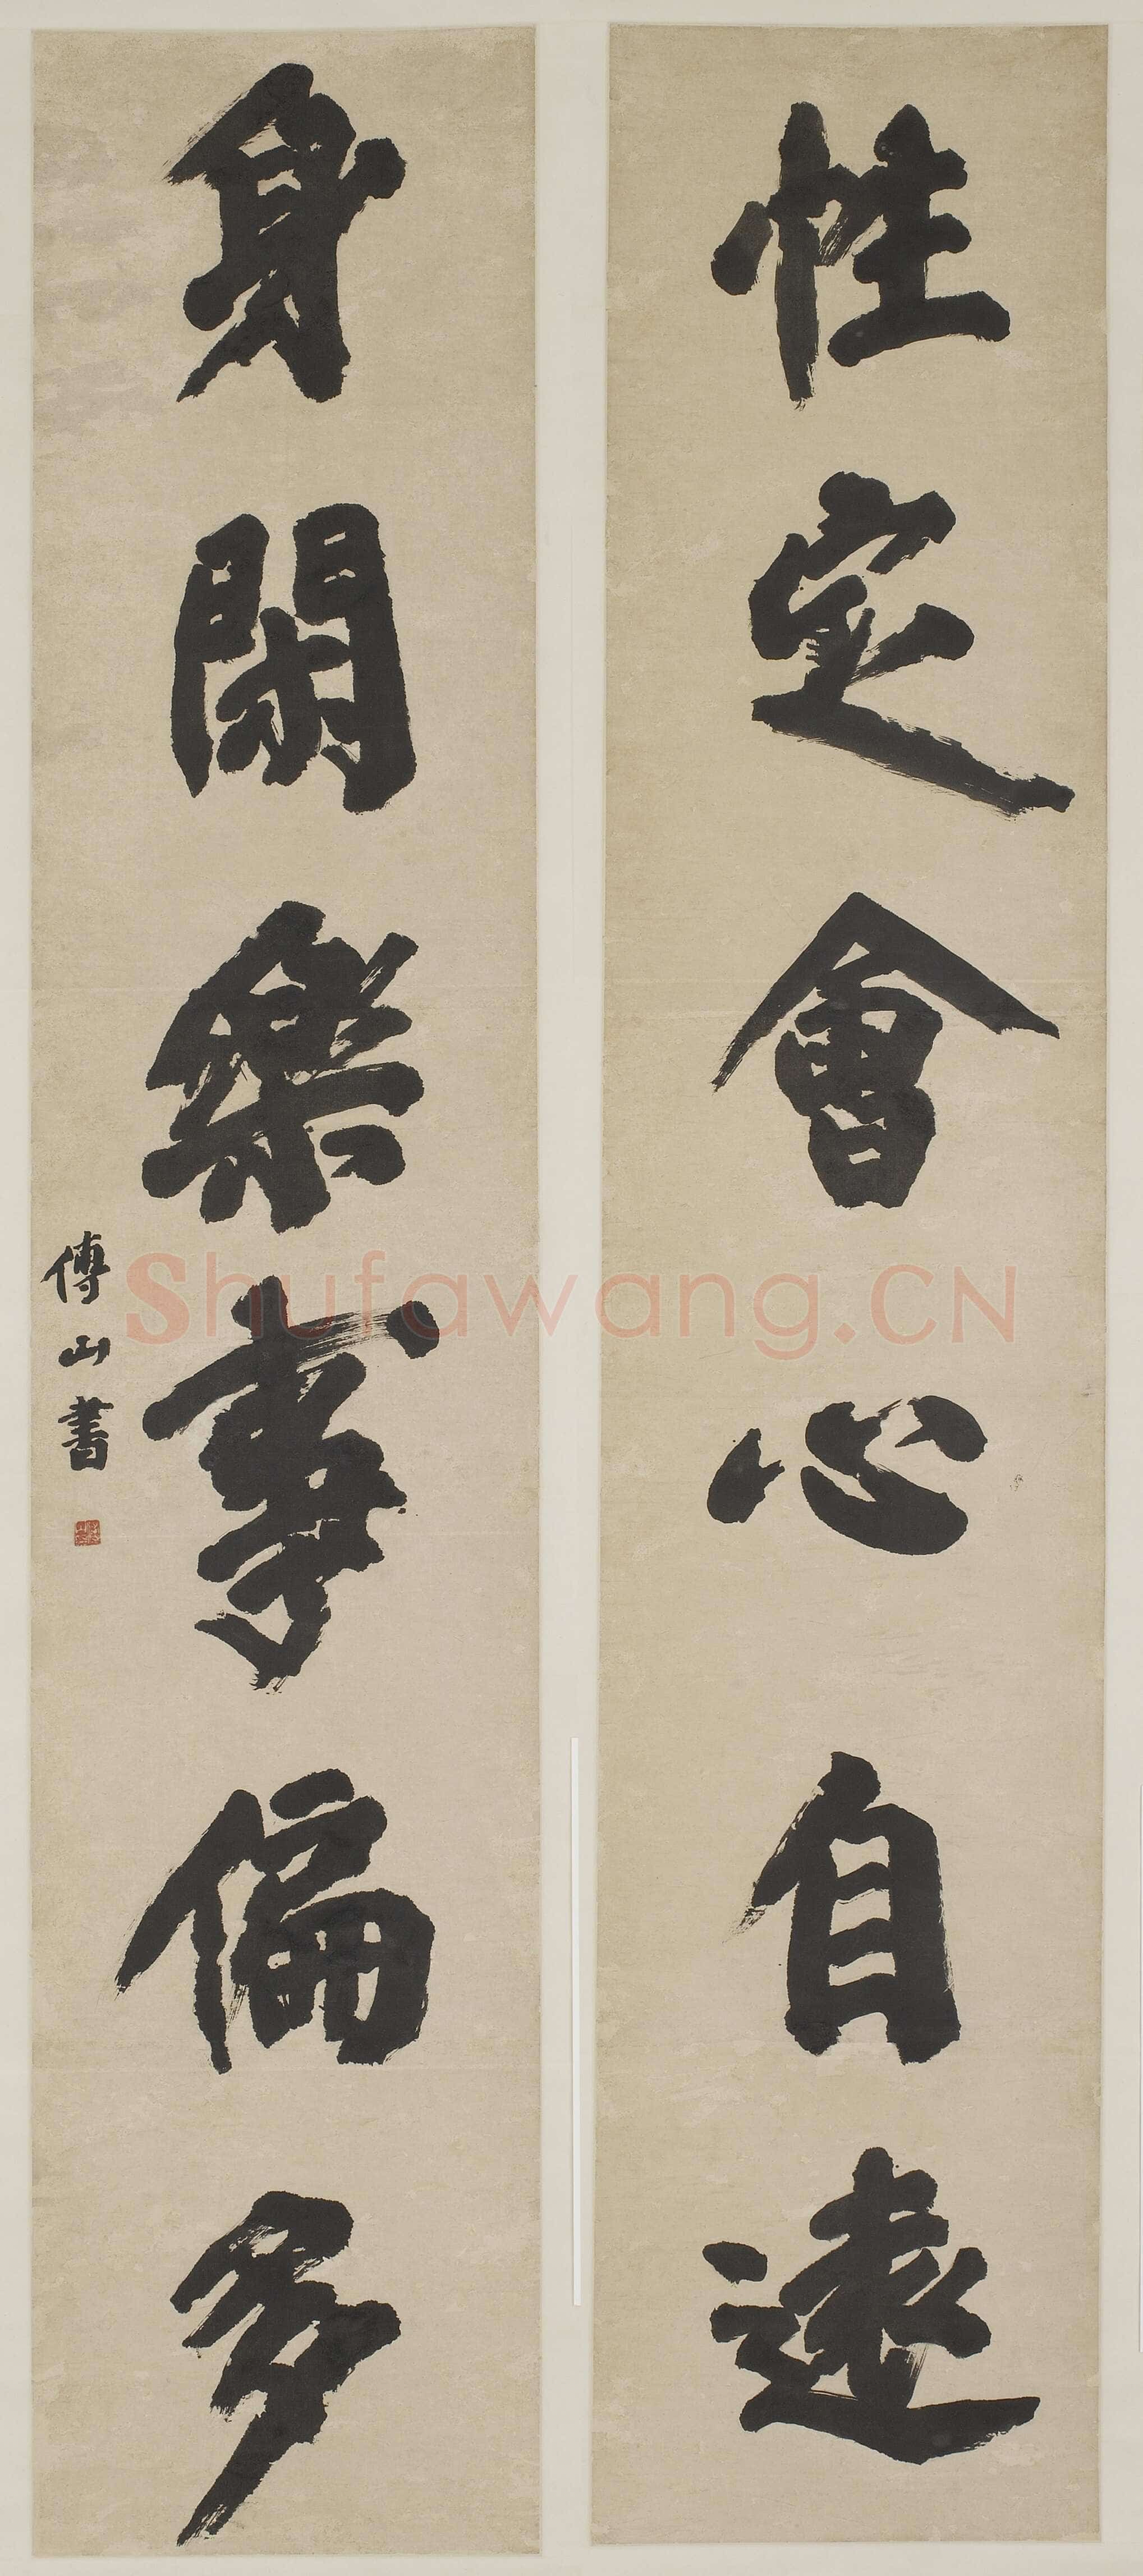 性定會心自遠
身閑樂事偏多
傅山書
Shufawang.CN